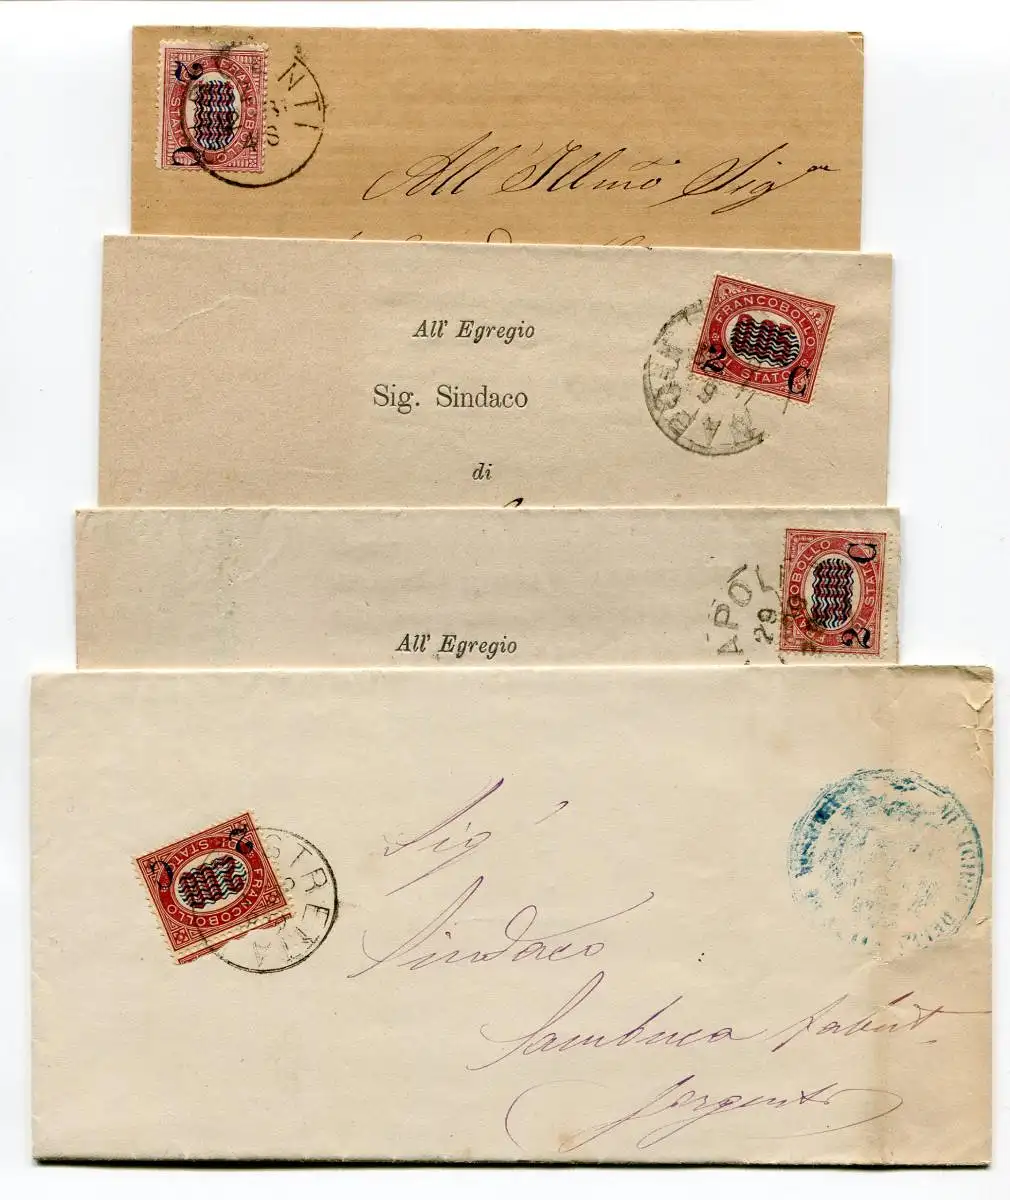 2 C
FRANCOBOLLO
DI STATO
NTI
All' Illmo Sigre
2 C
FRANCOBOLLO
DI STATO
NAPOLI
All' Egregio
Sig. Sindaco
di
2 C
FRANCOBOLLO
DI STATO
NAPOLI
29
All' Egregio
2 C
FRANCOBOLLO
DI STATO
STRETTA
MUNICIPIO DELL
Sigr
Sindaco
Sambuca Zabut